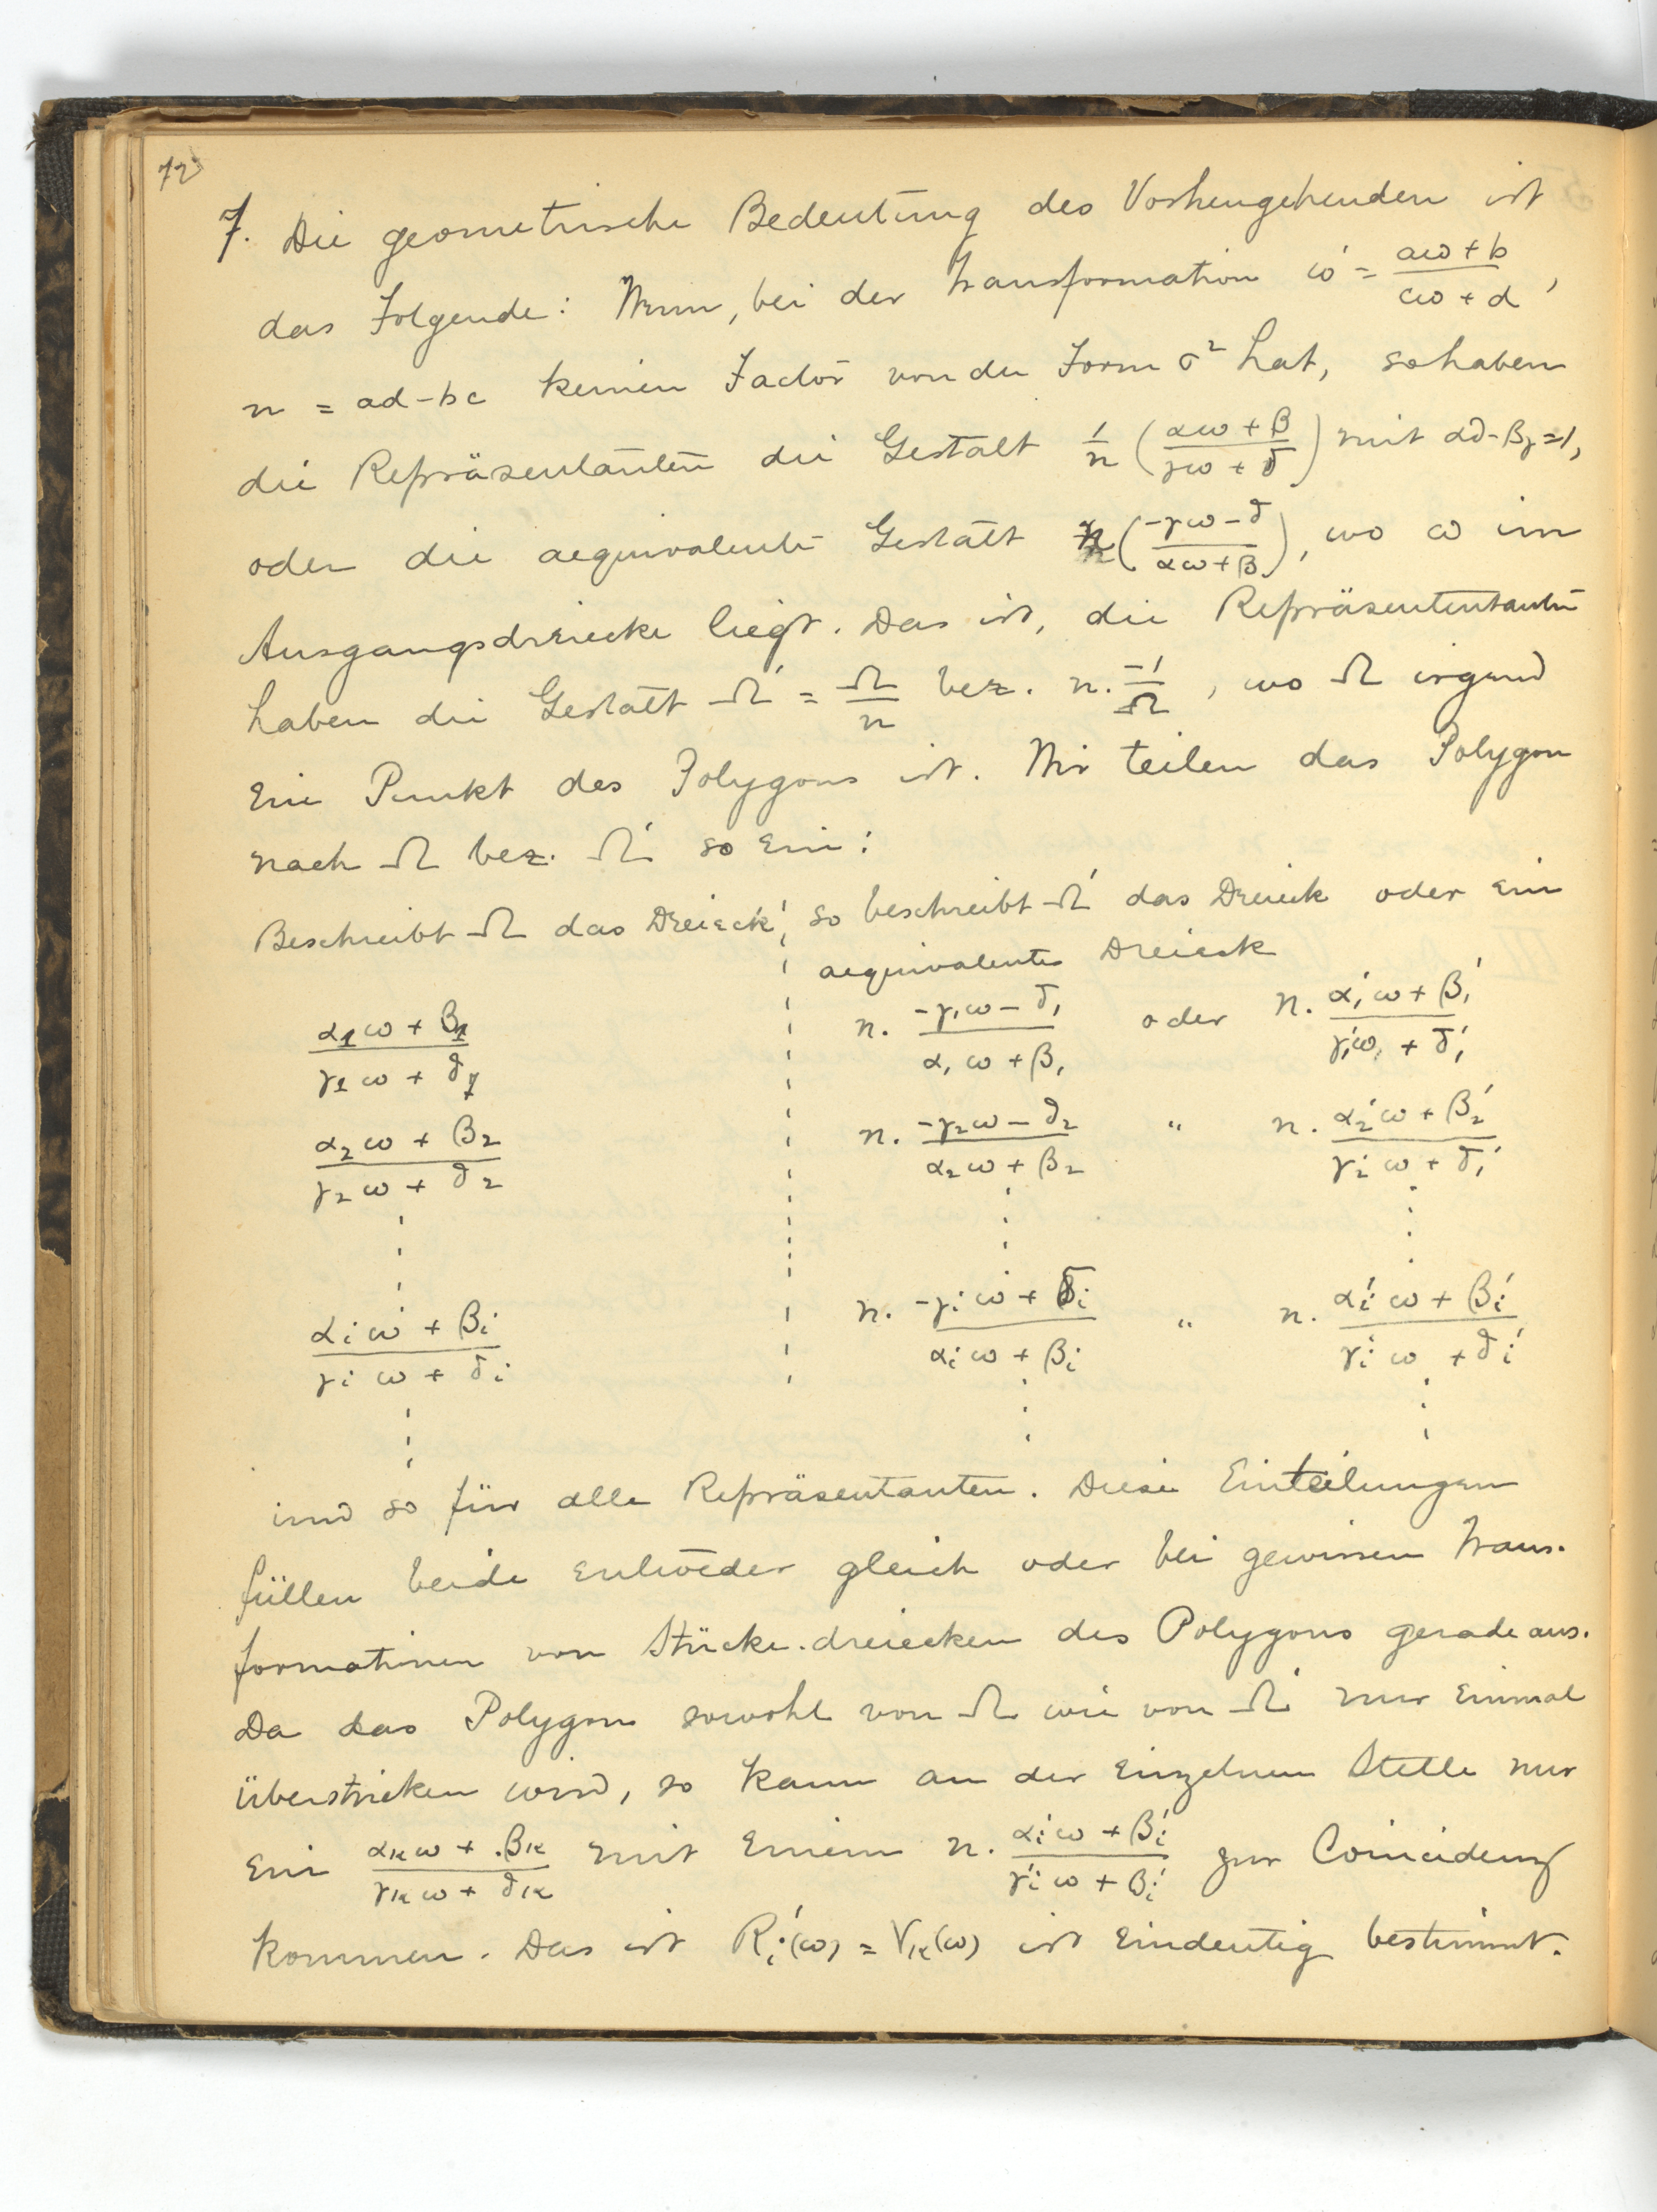 72
7. Die geometrische Bedeutung des Vorhengehenden ist
das Folgende: Wenn, bei der Transformation ω' = (aω + b)/(cω + d),
n = ad - bc keinen Factor von der Form σ² hat, so haben
die Repräsentanten die Gestalt 1/n ((αω + β)/(γω + δ)) mit αδ - βγ = 1,
oder die aequivalente Gestalt n((-γω - δ)/(αω + β)), wo ω im
Ausgangsdreiecke liegt. Das ist, die Repräsententanten
haben die Gestalt Ω' = Ω/n bez. n. -1/Ω, wo Ω irgend
ein Punkt des Polygons ist. Wir teilen das Polygon
nach Ω bez. Ω' so ein:
Beschreibt Ω das Dreieck, so beschreibt Ω' das Dreieck oder ein
aequivalentes Dreieck
(α₁ω + β₁)/(γ₁ω + δ₁) n. (-γ₁ω - δ₁)/(α₁ω + β₁) oder n. (α₁'ω + β₁')/(γ₁'ω + δ₁')
(α₂ω + β₂)/(γ₂ω + δ₂) n. (-γ₂ω - δ₂)/(α₂ω + β₂) " n. (α₂'ω + β₂')/(γ₂'ω + δ₁')
(αᵢω + βᵢ)/(γᵢω + δᵢ) n. (-γᵢω + δᵢ)/(αᵢω + βᵢ) " n. (αᵢ'ω + βᵢ')/(γᵢ'ω + δᵢ')
und so für alle Repräsentanten. Diese Einteilungen
füllen beide entweder gleich oder bei gewissen Trans-
formationen von Stücke.dreiecken des Polygons gerade aus.
Da das Polygon sowohl von Ω wie von Ω' nur einmal
überstrichen wird, so kann an der einzelnen Stelle nur
ein (αₖω + βₖ)/(γₖω + δₖ) mit einem n. (αᵢ'ω + βᵢ')/(γᵢ'ω + βᵢ') zur Coincidenz
kommen. Das ist Rᵢ'(ω) = Vₖ(ω) ist eindeutig bestimmt.